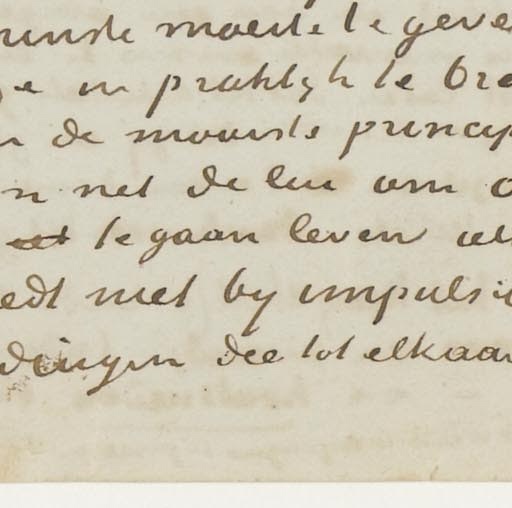 minste moeite te geve
ge en praktijk te bre
n de mooiste princip
n net de lui om o
te gaan leven als
edt niet by impulsi
dingen die tot elkaar